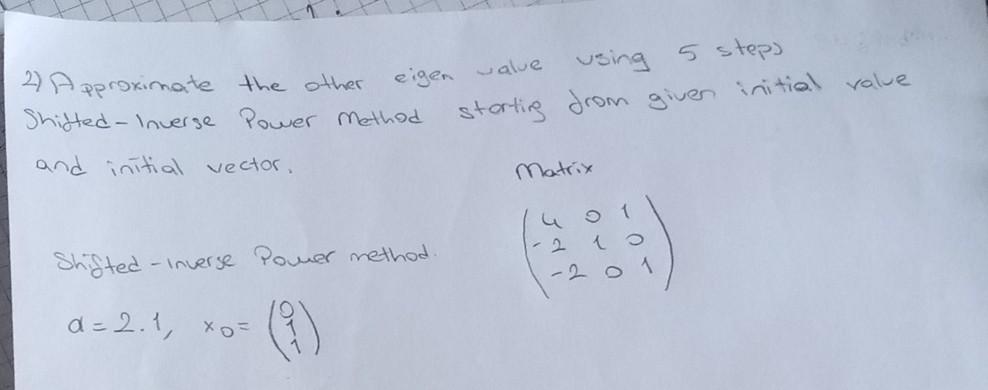 2) Approximate the other eigen value using 5 steps
Shifted-Inverse Power Method starting from given initial value
and initial vector.
Matrix
( 4 0 1 )
( -2 1 0 )
( -2 0 1 )
Shifted-inverse Power method.
α = 2.1, x0 = ( 0 1 1 )